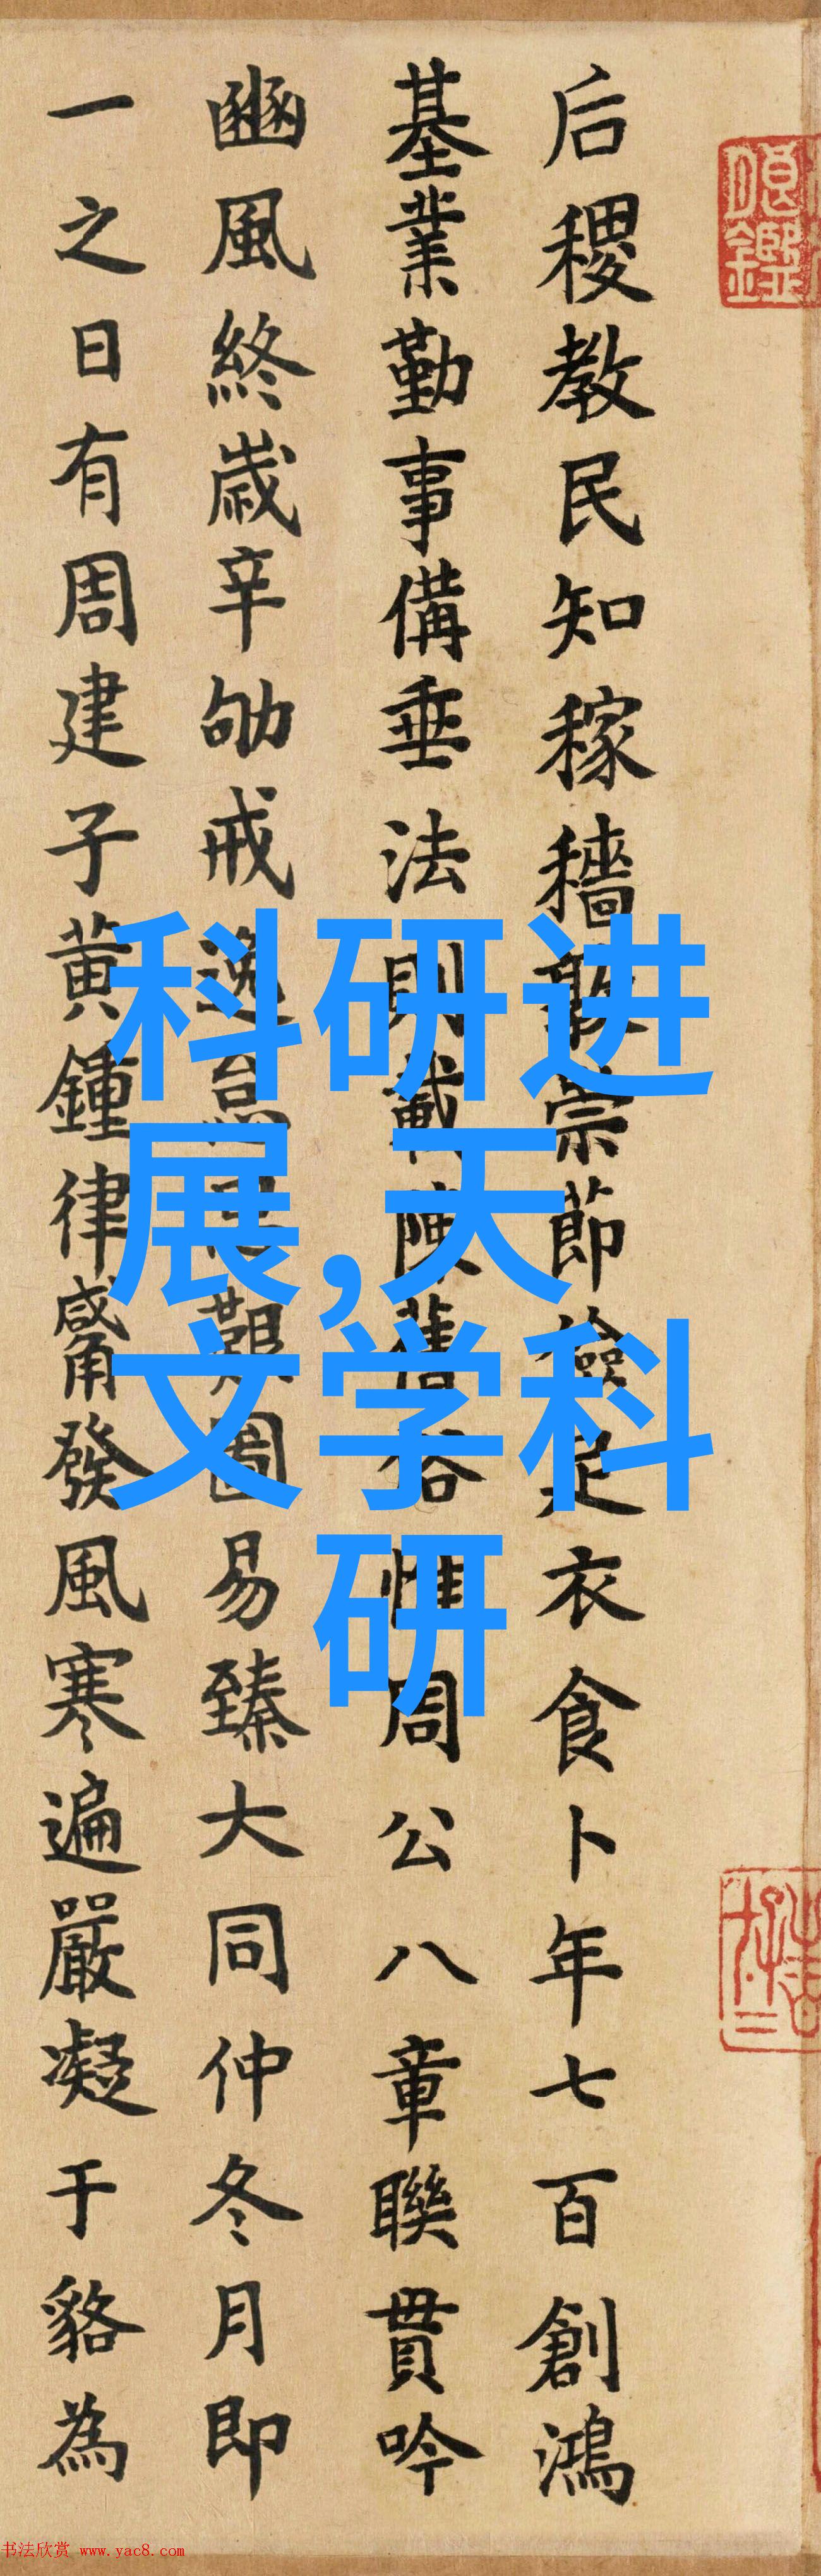 后稷教民知稼穡敦崇節儉足衣食卜年七百創鴻
基業勤事備垂法則載陳舊俗惟周公八章聯貫吟
豳風終歲辛劬戒逸艱圖易臻大同仲冬月即
一之日有周建子黃鍾律觱發風寒遍嚴凝于貉為
科研进
展,天
文学科
研
书法欣赏 www.yac8.com